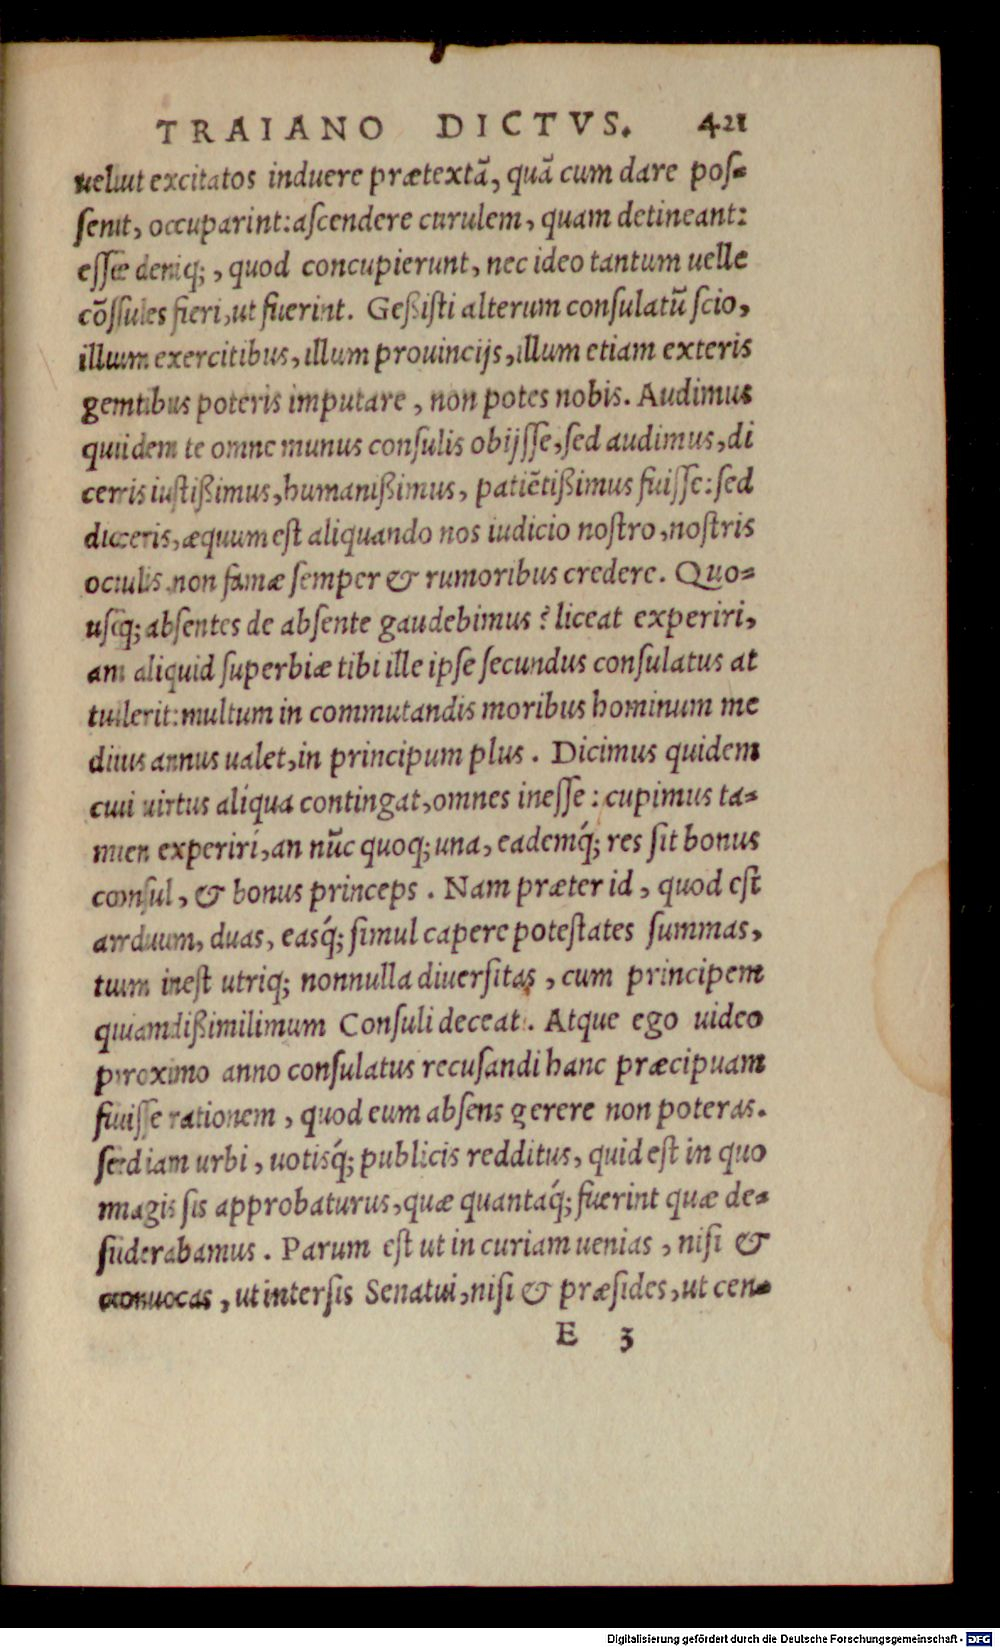 TRAIANO DICTVS. 421
uelut excitatos induere prætextā, quā cum dare pos-
senit, occuparint: ascendere curulem, quam detineant:
esse deniq;, quod concupierunt, nec ideo tantum uelle
cōssules fieri, ut fuerint. Geßisti alterum consulatū scio,
illum exercitibus, illum prouincijs, illum etiam exteris
gentibus poteris imputare, non potes nobis. Audimus
quidem te omne munus consulis obijsse, sed audimus, di
ceris iustißimus, humanißimus, patiētißimus fuisse: sed
diceris, æquum est aliquando nos iudicio nostro, nostris
oculis, non famæ semper & rumoribus credere. Quo-
usq; absentes de absente gaudebimus? liceat experiri,
an aliquid superbiæ tibi ille ipse secundus consulatus at
tulerit: multum in commutandis moribus hominum me
dius annus ualet, in principum plus. Dicimus quidem
cui uirtus aliqua contingat, omnes inesse: cupimus ta-
men experiri, an nūc quoq; una, eademq́; res sit bonus
consul, & bonus princeps. Nam præter id, quod est
arduum, duas, easq́; simul capere potestates summas,
tum inest utriq; nonnulla diuersitas, cum principem
quamdißimilimum Consuli deceat. Atque ego uideo
proximo anno consulatus recusandi hanc præcipuam
fuisse rationem, quod eum absens gerere non poteras.
sed iam urbi, uotisq́; publicis redditus, quid est in quo
magis sis approbaturus, quæ quantaq́; fuerint quæ de-
siderabamus. Parum est ut in curiam uenias, nisi &
conuocas, ut intersis Senatui, nisi & præsides, ut cen-
E 3
Digitalisierung gefördert durch die Deutsche Forschungsgemeinschaft - DFG